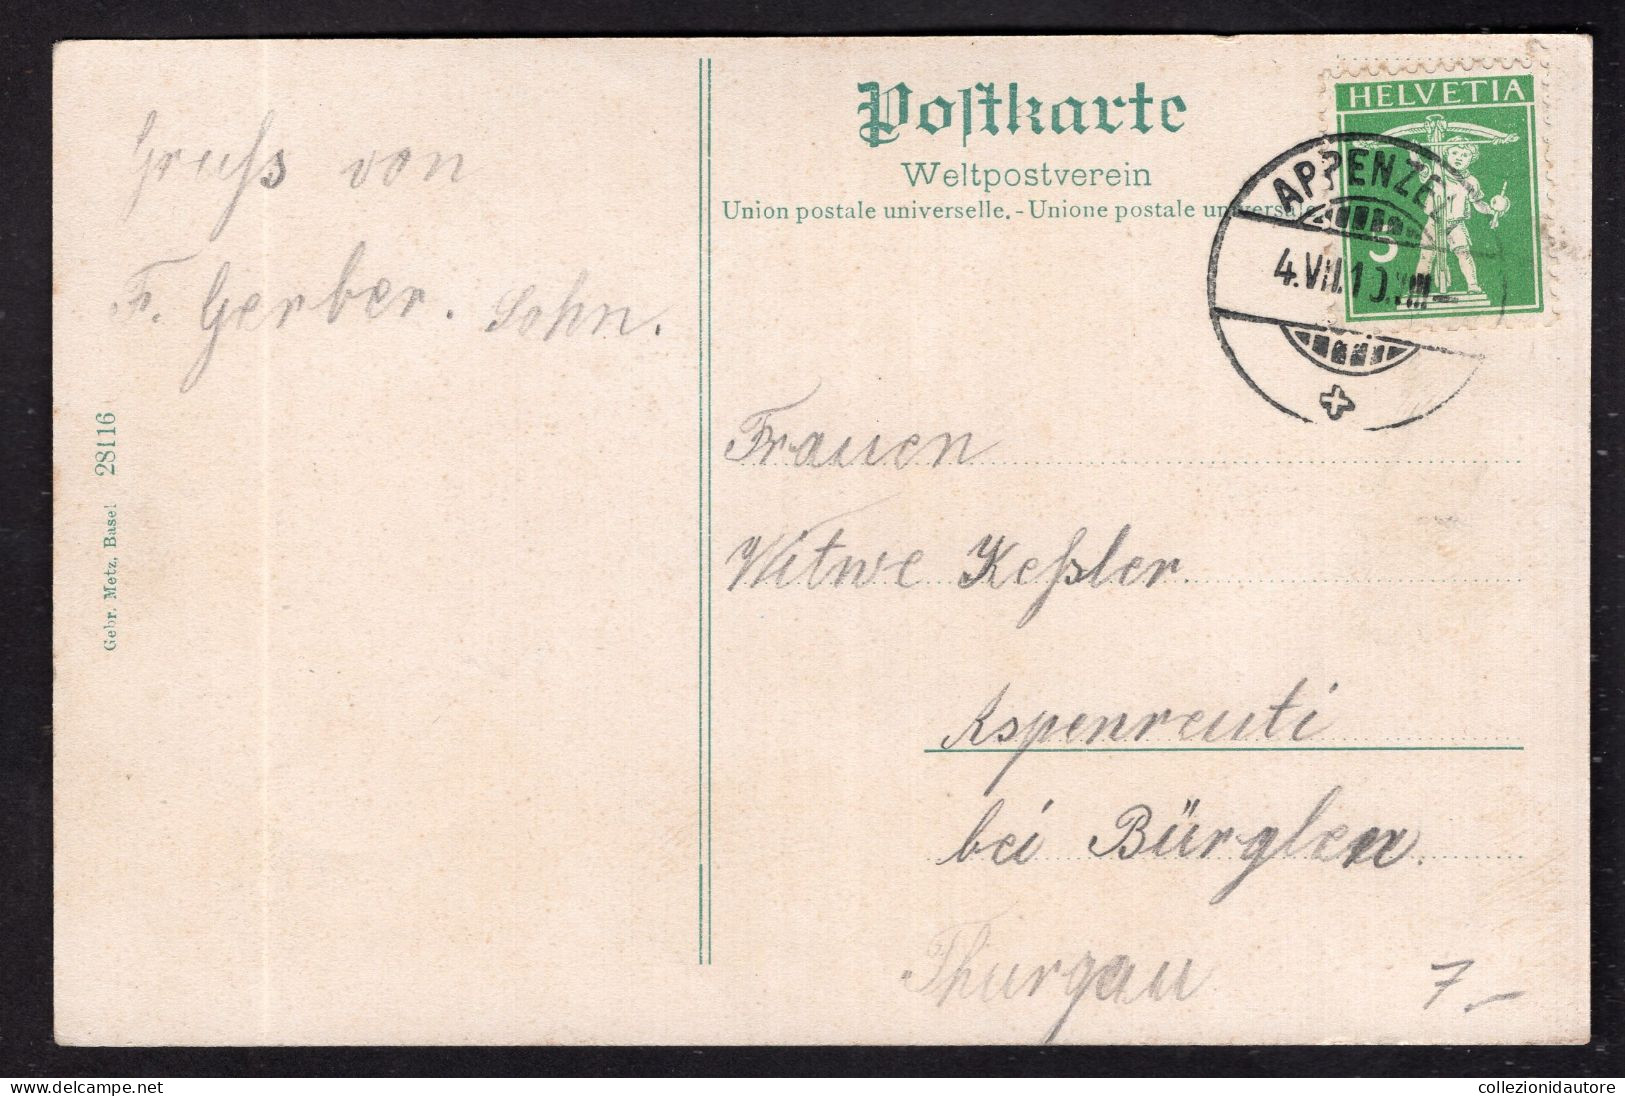 Postkarte
Weltpostverein
Union postale universelle. - Unione postale universale
HELVETIA
5
APPENZELL
4.VII.10.
Gruss von
F. Gerber. Sohn.
Gebr. Metz, Basel 28116
Frauen
Witwe Keßler.
Aspenreuti
bei Bürglen.
Thurgau
7.-
collezionidautore